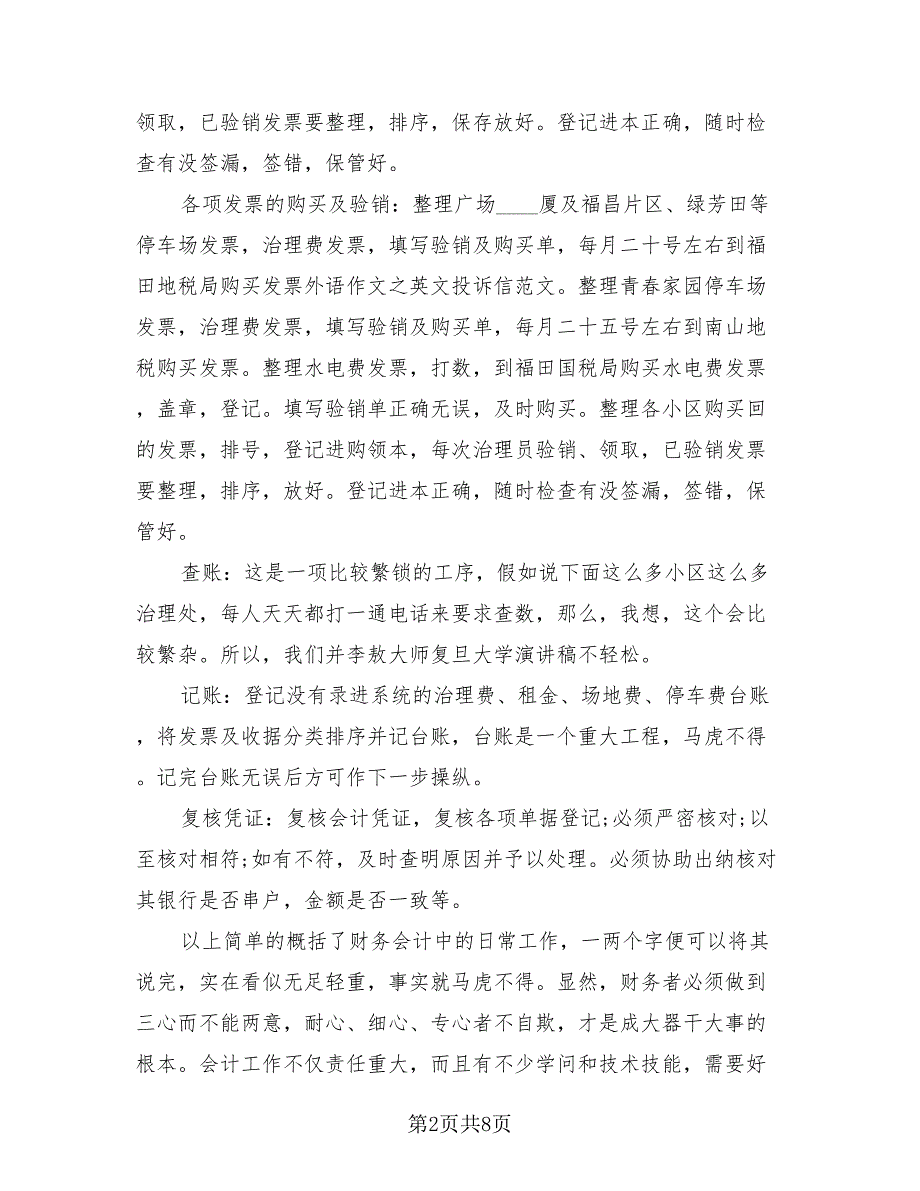 领取，已验销发票要整理，排序，保存放好。登记进本正确，随时检
查有没签漏，签错，保管好。
各项发票的购买及验销：整理广场____厦及福昌片区、绿芳田等
停车场发票，治理费发票，填写验销及购买单，每月二十号左右到福
田地税局购买发票外语作文之英文投诉信范文。整理青春家园停车场
发票，治理费发票，填写验销及购买单，每月二十五号左右到南山地
税购买发票。整理水电费发票，打数，到福田国税局购买水电费发票
，盖章，登记。填写验销单正确无误，及时购买。整理各小区购买回
的发票，排号，登记进购领本，每次治理员验销、领取，已验销发票
要整理，排序，放好。登记进本正确，随时检查有没签漏，签错，保
管好。
查账：这是一项比较繁锁的工序，假如说下面这么多小区这么多
治理处，每人天天都打一通电话来要求查数，那么，我想，这个会比
较繁杂。所以，我们并李敖大师复旦大学演讲稿不轻松。
记账：登记没有录进系统的治理费、租金、场地费、停车费台账
，将发票及收据分类排序并记台账，台账是一个重大工程，马虎不得
。记完台账无误后方可作下一步操纵。
复核凭证：复核会计凭证，复核各项单据登记;必须严密核对;以
至核对相符;如有不符，及时查明原因并予以处理。必须协助出纳核对
其银行是否串户，金额是否一致等。
以上简单的概括了财务会计中的日常工作，一两个字便可以将其
说完，实在看似无足轻重，事实就马虎不得。显然，财务者必须做到
三心而不能两意，耐心、细心、专心者不自欺，才是成大器干大事的
根本。会计工作不仅责任重大，而且有不少学问和技术技能，需要好
第2页共8页